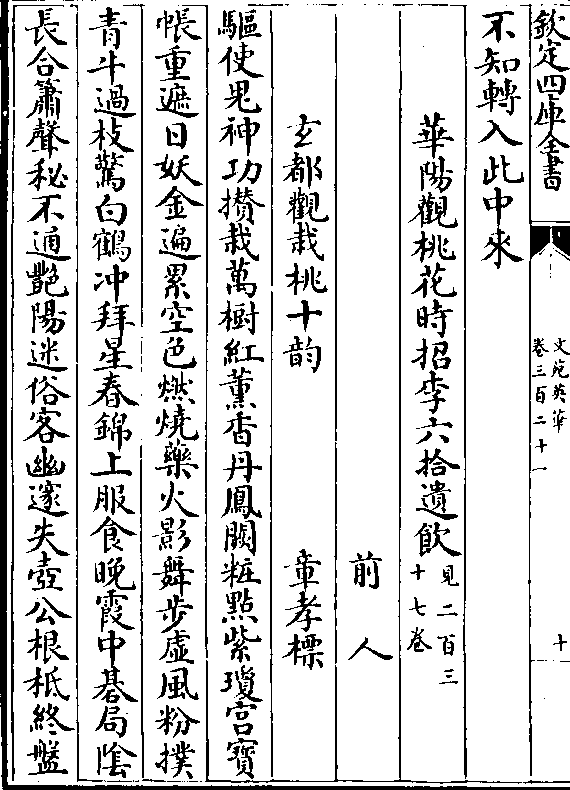 欽定四庫全書
文苑英華
卷三百二十一
十
不知轉入此中來
華陽觀桃花時招李六拾遺飲見二百三十七卷
前人
玄都觀栽桃十韵 章孝標
驅使鬼神功攅栽萬樹紅薰香丹鳳闕粧點紫瓊宮寳
帳重遮日妖金遍累空色燃燒藥火影舞步虛風粉撲
青牛過枝驚白鶴冲拜星春錦上服食晚霞中棊局隂
長合簫聲秘不通艶陽迷俗客幽邃失壺公根柢終盤